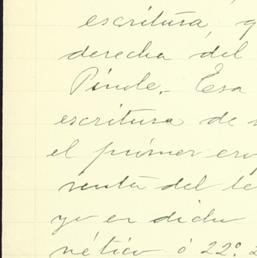 escritura, q
derecha del
Pinole. Esa
escritura de
el primer
venta del te
yo en dicho
nético ó 22º 2